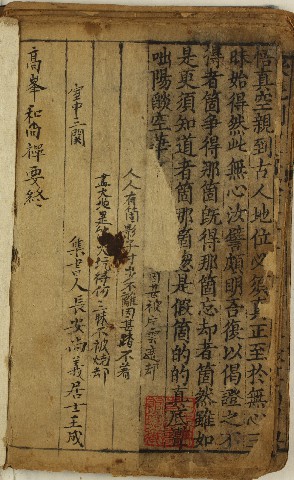 悟真空親到古人地位必須真正至於無心三
昧始得然此無心汝譬頗明吾復以偈證之不
得者箇爭得那箇旣得那箇忘却者箇然雖如
是更須知道者箇那箇總是假箇的的真底聻
咄陽燄空華
因甚被片雲遮却
人人有箇影子寸步不離因甚踏不着
盡大地是火坑得何三昧不被燒却
室中三関
集書人長安尚義居士王成
高峯和尚禪要終